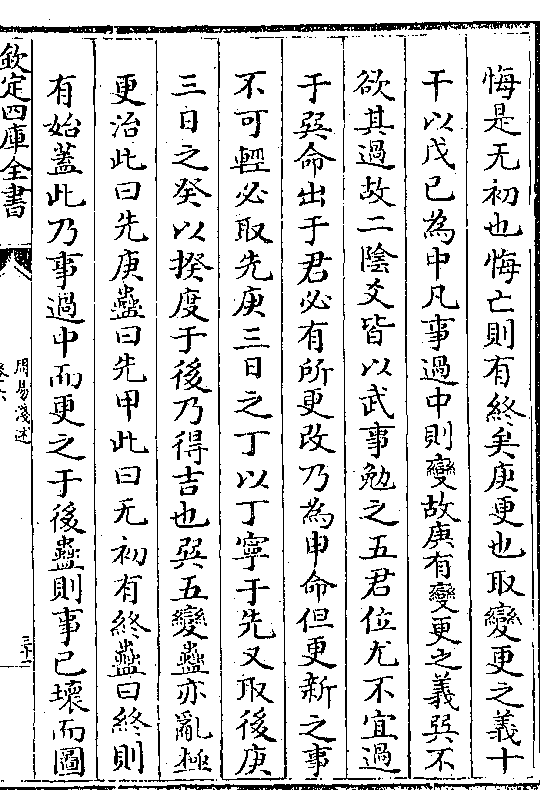 悔是无初也悔亡則有終矣庚更也取變更之義十
干以戊己為中凡事過中則變故庚有變更之義巽不
欲其過故二陰爻皆以武事勉之五君位尤不宜過
于巽命出于君必有所更改乃為申命但更新之事
不可輕必取先庚三日之丁以丁寧于先又取後庚
三日之癸以揆度于後乃得吉也巽五變蠱亦亂極
更治此曰先庚蠱曰先甲此曰无初有終蠱曰終則
有始蓋此乃事過中而更之于後蠱則事已壞而圖
欽定四庫全書
周易淺述
卷六
三十一